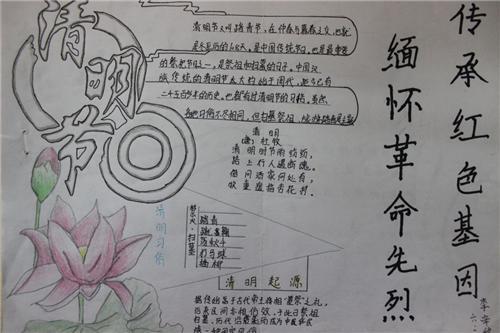 传承红色基因
缅怀革命先烈
清明节
清明节又叫踏青节，在仲春与暮春之交，也就
是冬至后的108天。是中国传统节日，也是最重要
的祭祀节日之一，是祭祖和扫墓的日子。中国汉
族传统的清明节大约始于周代，距今已有
二千五百多年的历史。
清明
唐:杜牧
清明时节雨纷纷，
路上行人欲断魂。
借问酒家何处有，
牧童遥指杏花村。
清明习俗
祭祖、扫墓
踏青
荡秋千
打马球
插柳
清明起源
据传始于古代帝王将相"墓祭"之礼，
后来民间亦相仿效，于此日祭祖
扫墓，历代沿袭而成为中华民族